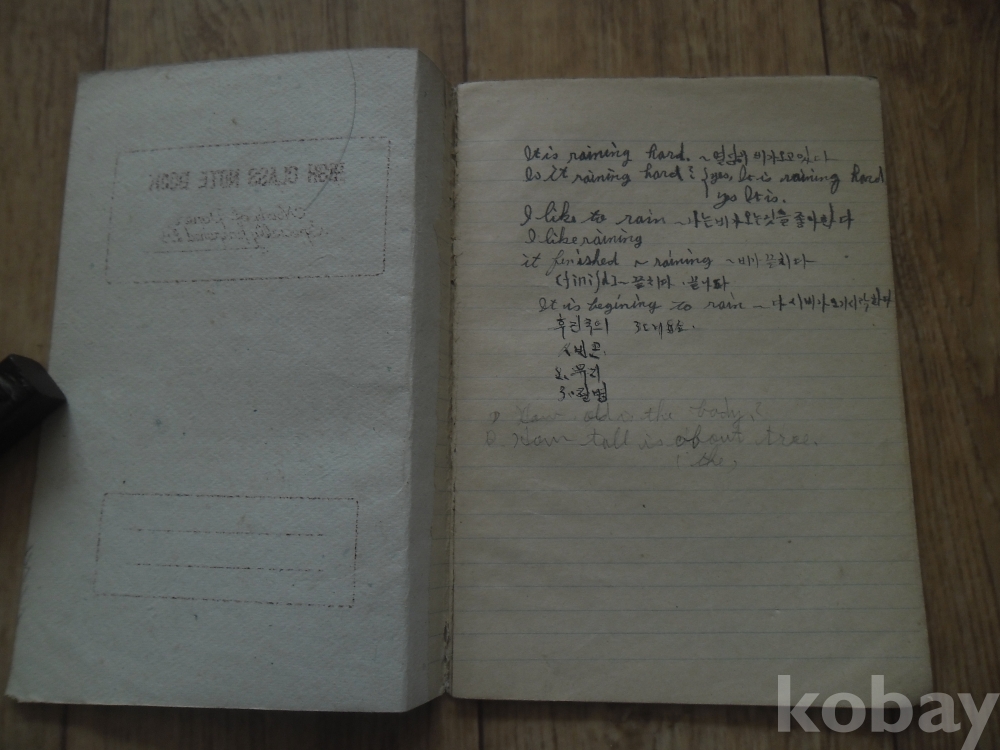 HIGH CLASS NOTE BOOK
It is raining hard. ~ 열심히 비가오고있다
Is it raining hard? { yes, It is raining hard
yes It is.
I like to rain ~ 나는 비가 오는것을 좋아한다
I like raining
it finished ~ raining ~ 비가 끝히다
~ 끝히다. 끝나다
It is begining to rain ~ 다시 비가 오기 시작한다
3대요소.
How old is the body?
How tall is about tree.
the
kobay